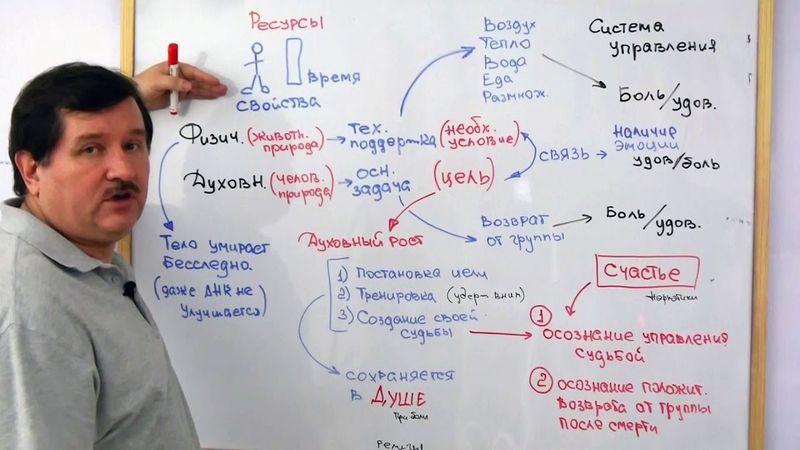 Ресурсы
Время
свойства
Воздух
Тепло
Вода
Еда
Размнож.
Система
управления
Боль/удов.
Физич. (животн. природа) тех. поддержка (необх. условие)
связь
Наличие
эмоции
удов/боль
Духовн. (челов. природа) осн. задача (цель)
Тело умирает
Бесследно.
(даже ДНК не
улучшается)
Духовный рост
Возврат
от группы
Боль/удов.
1) Постановка цели
2) Тренировка (удерж вним)
3) Создание своей
судьбы
счастье
наркотики
1
осознание управления
судьбой
2 осознание положит.
возврата от группы
после смерти
сохраняется
в Душе